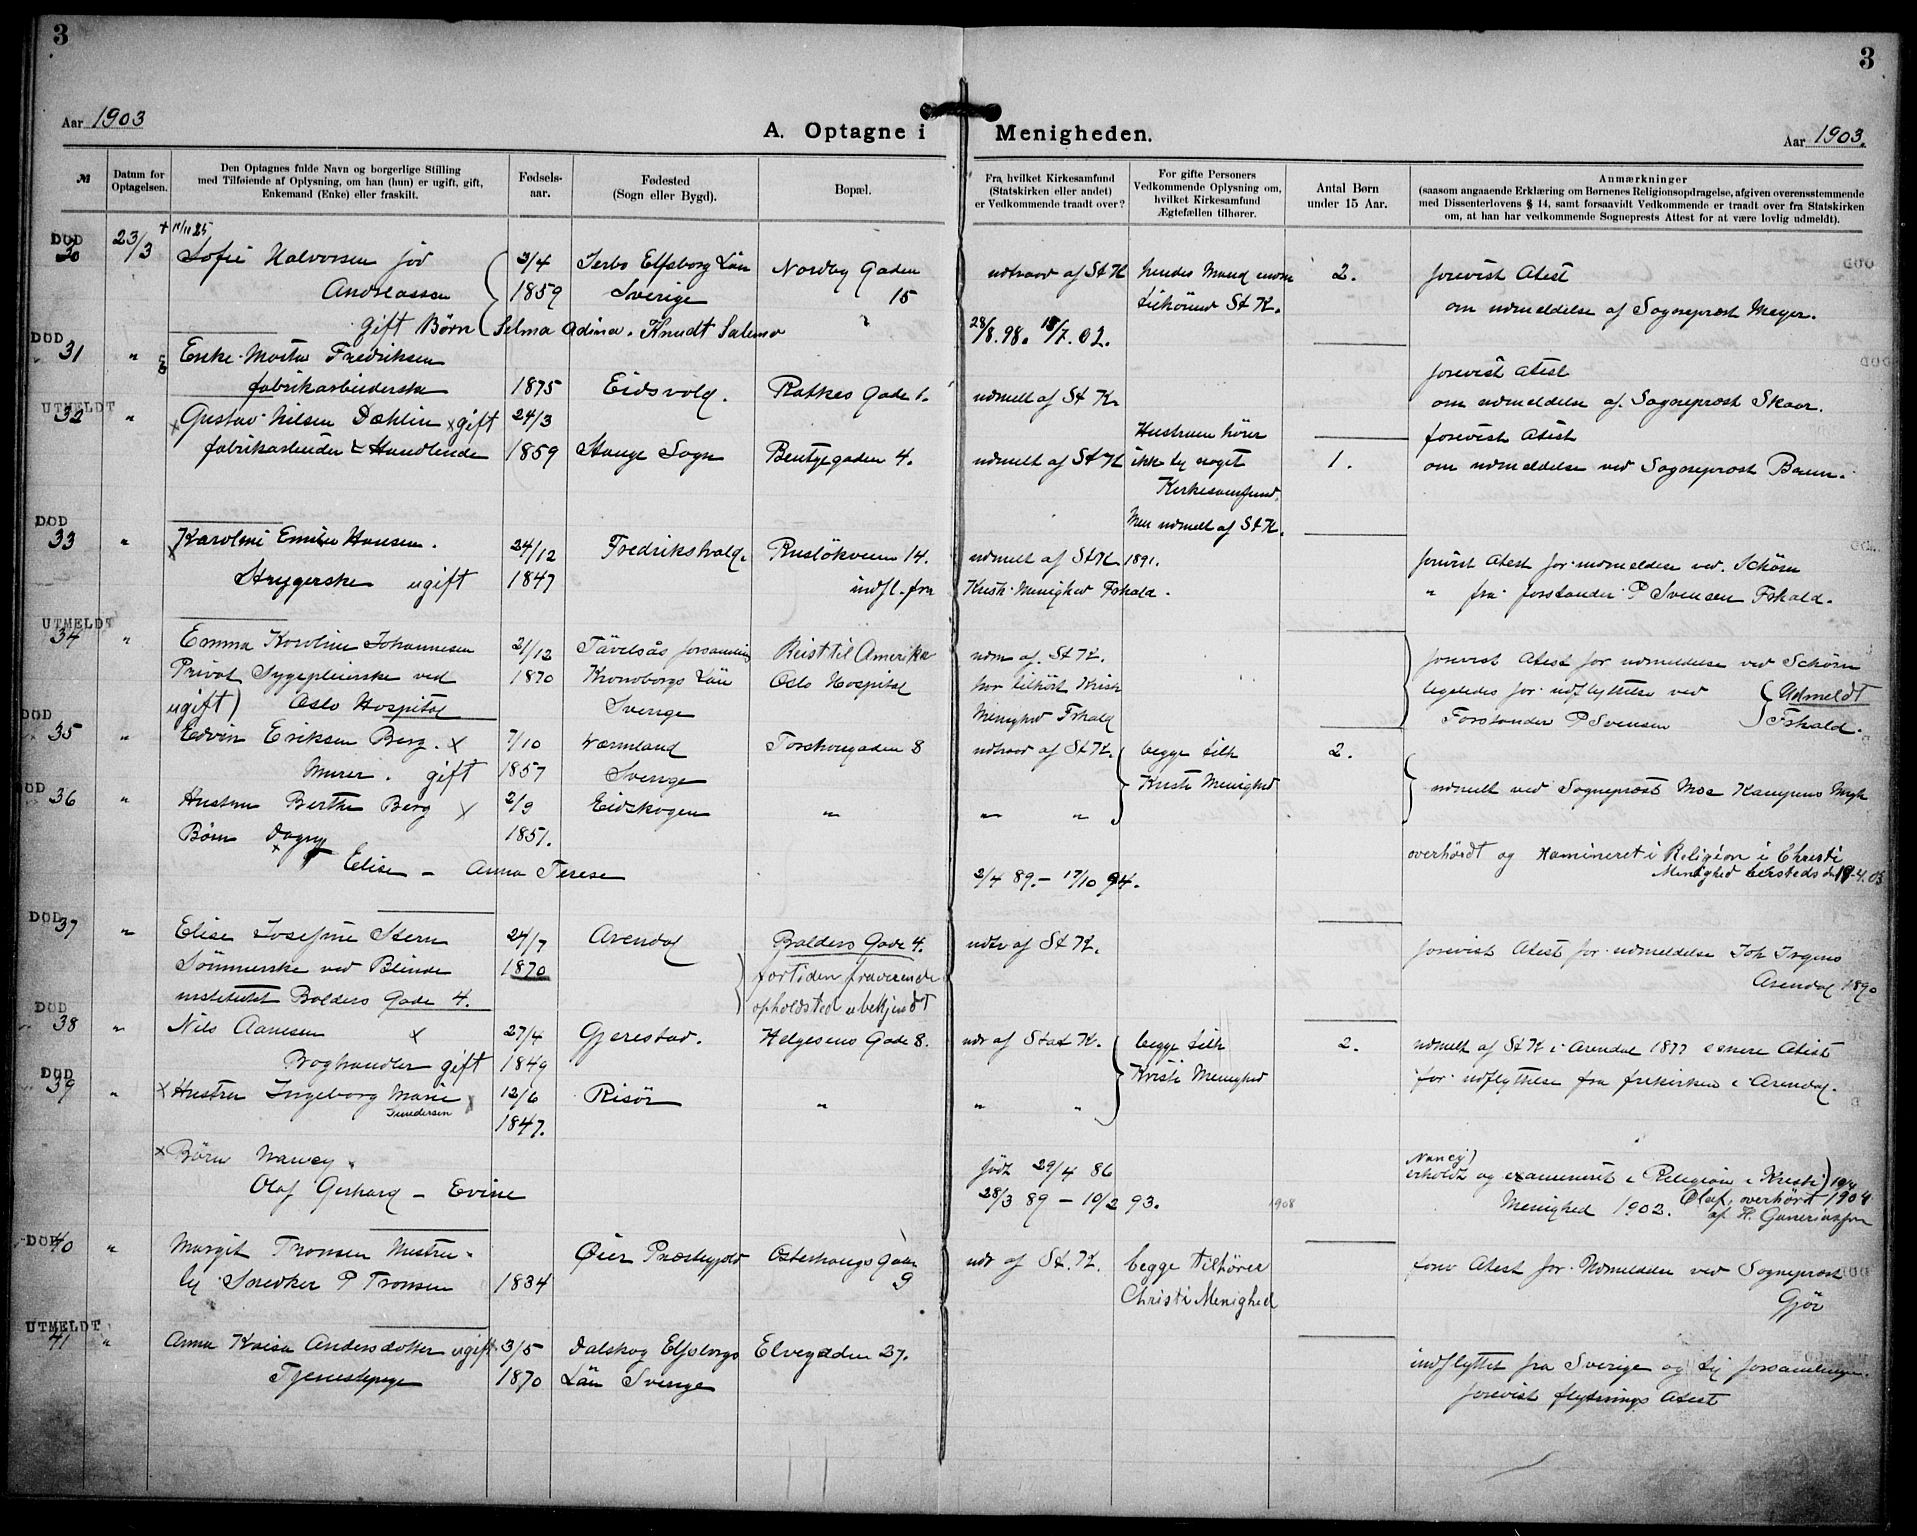 3
3
Aar 1903
A. Optagne i Menigheden.
Aar 1903.
№
Datum for Optagelsen.
Den Optagnes fulde Navn og borgerlige Stilling
med Tilføiende af Oplysning, om han (hun) er ugift, gift,
Enkemand (Enke) eller fraskilt.
Fødsels-
aar.
Fødested
(Sogn eller Bygd).
Bopæl.
Fra hvilket Kirkesamfund
(Statskirken eller andet)
er Vedkommende traadt over?
For gifte Personers
Vedkommende Oplysning om,
hvilket Kirkesamfund
Ægtefællen tilhører.
Antal Børn
under 15 Aar.
Anmærkninger
(saasom angaaende Erklæring om Børnenes Religionsopdragelse, afgiven overensstemmende
med Dissenterlovens § 14, samt forsaavidt Vedkommende er traadt over fra Statskirken
om, at han har vedkommende Sogneprests Attest for at være lovlig udmeldt).
DØD
30 23/3 Sofie Halvorsen fød 3/4 Elfsborg Län Nordby Gaden udtraad af St K hendes Mand 2. forevist Atest
Andreassen 1859 Sverige 15 St K. om udmeldelse af Sogneprest Meyer.
gift Børn Selma Adina. Knudt 28/8.98. 18/7.02.
DØD
31 " Enke Fredriksen forevist Atest
fabrikarbeiderske 1875 Eidsvold. Ratkes Gade 1. udmelt af St K. om udmeldelse af Sogneprest Skaar.
UTMELDT
32 " Gustav Nilsen Dæhlin gift 24/3 Hustruen hører forevist Atest
fabrikarbeider & Handlende 1859 Stange Sogn 4. udmelt af St K ikke noget 1. om udmeldelse ved Sogneprest
Kirkesamfund.
Men udmelt af St K.
DØD
33 " Karoline Emilie Hansen. 24/12 Fredrikshald. Rusløkveien 14. udmelt af St K 1891. forevist Atest for udmeldelse ved Schørn
Strygerske ugift 1847 indfl. fra Krist. Menighed Fshald. " fra forstander P Svensen Fshald.
UTMELDT
34 " Emma Karoline Johannesen 21/12 Tävelsås forsamling Reist til Amerika udm af St K. forevist Atest for udmeldelse ved Schørn
Privat Sygepleierske ved 1870 Kronobergs Län Oslo Hospital har tilhørt Krist ligeledes for udflyttelse ved Udmeldt
ugift) Oslo Hospital Sverige Menighed Fshald Forstander P Svensen Fshald.
DØD
35 " Edvin Eriksen Berg. x 7/10 Værmland 8 udtraad af St K. begge tilh 2.
Murer. gift 1857 Sverige Kristi Menighed
DØD
36 " Hustru Berthe Berg x 2/9 Eidskogen " " " udmelt ved Sogneprest Moe Kampens Mgh
Børn Dagny 1851. overhørdt og examineret i Religion i Christi
Elise – Anna Terese 2/4 89. – 17/10 94. Menighed
DØD
37 " Elise Josefine Stern 24/7 Arendal Balders Gade 4. udtr af St K. forevist Atest for udmeldelse Joh Irgens
ved Blinde 1870 fortiden fraværende Arendal 1890
institutet Balders Gade 4. opholdsted ubekjendt
DØD
38 " Nils Aanesen x 27/4 Gjerestad. Helgesens Gade 8. udr af Stat K. begge tilh 2. udmelt af St K i Arendal 1877 senere Atest
Boghandler gift 1849 Kristi Menighed for udflyttelse fra frikirken i Arendal.
DØD
39 " x Hustru Ingeborg Marie x 12/6 Risør " " "
Gundersen 1847.
x Børn Nancy. født 29/4 86 Nancy)
Olaf Gerhard – Evine 28/3 89 – 10/2 93. 1908 og examineret i Religion i Kristi
Menighed 1902. Olaf, overhørt 1904
af H. Gunerius
DØD
40 " Margit Tronsen Hustru Øier Præstegjeld Østerhaugs Gade udr af St. K. begge tilhører Atest for Udmeldelse ved Sogneprest
til Snedker P Tronsen 1834 9 Christi Menighed Gjør
UTMELDT
41 " Anna Kaisa Andersdotter ugift 3/5 Dalskog Elfsborgs Elvegaden 37. indflyttet fra Sverige og forsamlingen.
Tjenestepige 1870 Län Sverige forevist flytnings Atest